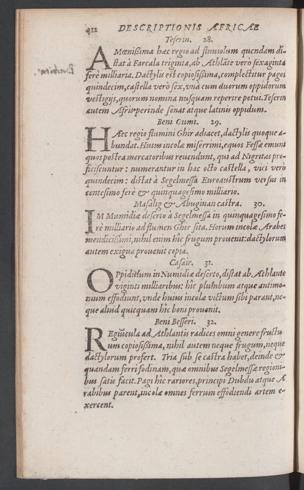 412 DESCRIPTIONIS AFRICAE
Teserin. 28.
AMœnißima hæc regio ad fluuiolum quendam di
stat à Farcala triginta, ab Athlāte verò sexaginta
ferè milliaria. Dactylis est copiosissima, complectitur pagos
quindecim, castella verò sex, vnà cum duorum oppidorum
vestigijs, quorum nomina nusquam reperire potui. Teserin
autem Assirperinde sonat atque latinis oppidum.
Beni Gumi. 29.
HÆc regio flumini Ghir adiacet, dactylis quoque a-
bundat. Huius incolæ miserrimi, equos Fessæ emunt
quos postea mercatoribus reuendunt, qui ad Nigritas pro-
ficiscuntur: numerantur in hac octo castella, vici verò
quindecim: distat à Segelmessa Euroaustrum versus in
centesimo ferè & quinquagesimo milliario.
Masalig & Abuginan castra. 30.
IM Numidiæ deserto à Segelmessa in quinquagesimo fe-
rè milliario ad flumen Ghir sita. Horum incolæ Arabes
mendicissimi, nihil enim hic frugum prouenit: dactylorum
autem exigua prouenit copia.
Casair. 31.
OPpidulum in Numidiæ deserto, distat ab Athlante
viginti milliaribus: hic plumbum atque antimo-
nium effodiunt, vnde huius incolæ victum sibi parant, ne-
que aliud quicquam hic boni prouenit.
Beni Besseri. 32.
REgiūcula ad Athlantis radices omni genere fructu
um copiosissima, nihil autem neque frugum, neque
dactylorum profert. Tria sub se castra habet, deinde &
quandam ferri fodinam, quæ omnibus Segelmessæ regioni-
bus satis facit. Pagi hic rariores, principi Dubdu atque A
rabibus parent, incolæ omnes ferrum effodiendi artem e-
xercent.